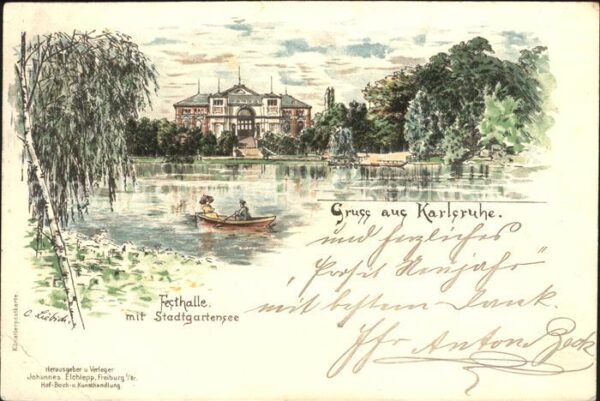 Gruss aus Karlsruhe.
und herzliches
"Prosit Neujahr"
mit bestem Dank.
Ihr Anton Beck
Festhalle.
mit Stadtgartensee
C. Liebich.
Künstlerpostkarte.
Herausgeber u. Verleger
Johannes Elchlepp, Freiburg i/Br.
Hof-Buch- u. Kunsthandlung.